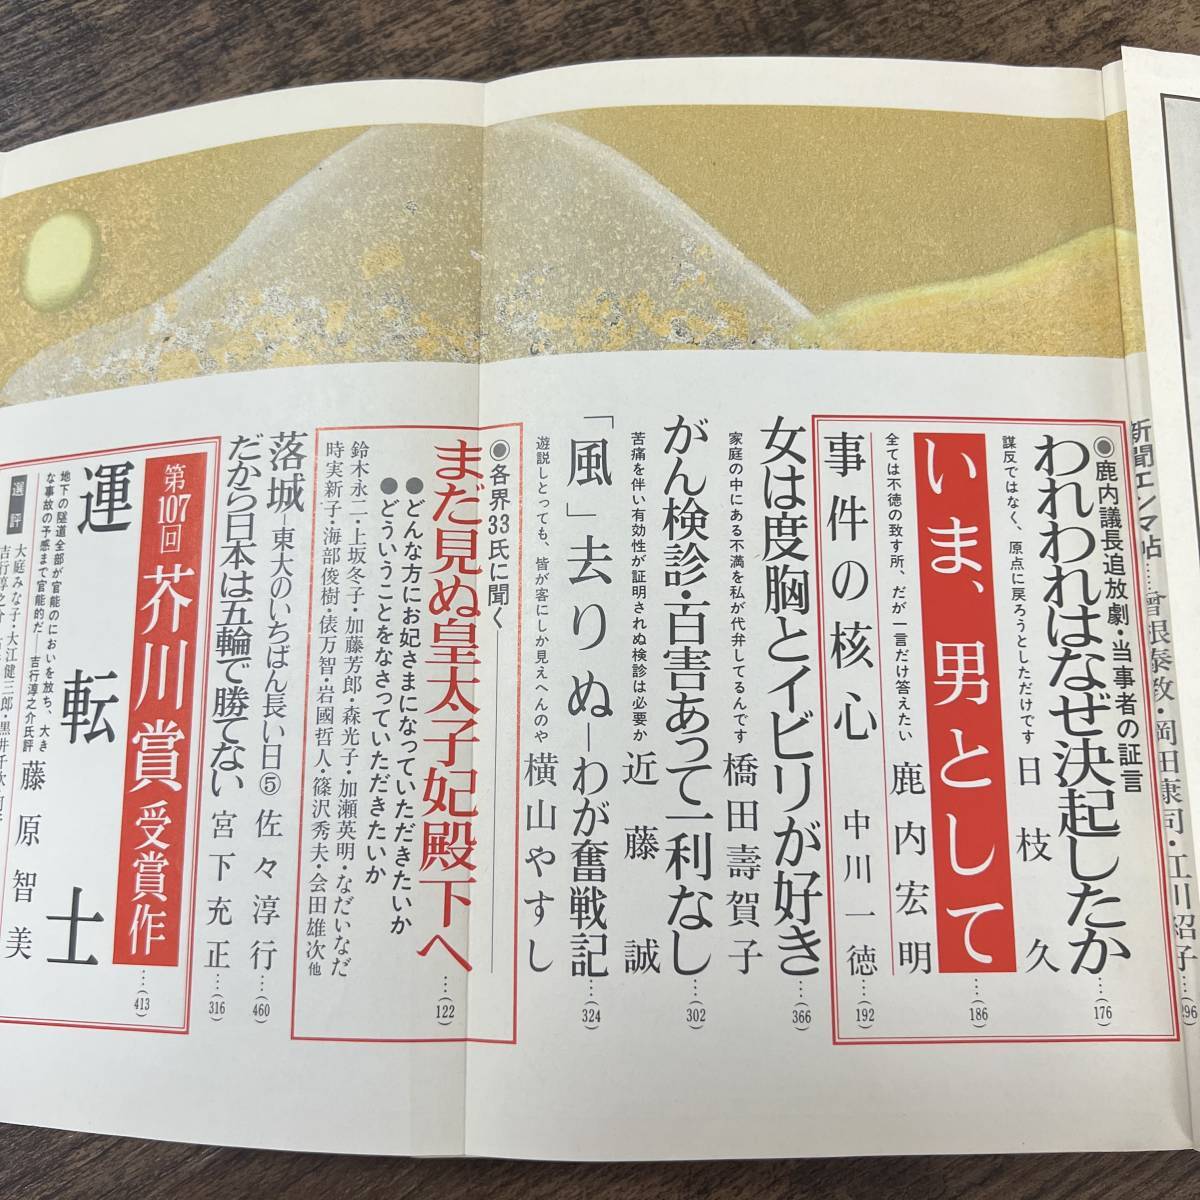 新聞エンマ帖……曾根泰教・岡田康司・江川紹子…(296)
◉鹿内議長追放劇・当事者の証言
われわれはなぜ決起したか…(176)
謀反ではなく、原点に戻ろうとしただけです 日枝久
いま、男として…(186)
全ては不徳の致す所、だが一言だけ答えたい 鹿内宏明
事件の核心 中川一徳…(192)
女は度胸とイビリが好き…(366)
家庭の中にある不満を私が代弁してるんです 橋田壽賀子
がん検診・百害あって一利なし…(302)
苦痛を伴い有効性が証明されぬ検診は必要か 近藤誠
「風」去りぬ—わが奮戦記…(324)
遊説しとっても、皆が客にしか見えへんのや 横山やすし
◉各界33氏に聞く
まだ見ぬ皇太子妃殿下へ…(122)
●どんな方にお妃さまになっていただきたいか
●どういうことをなさっていただきたいか
鈴木永二・上坂冬子・加藤芳郎・森光子・加瀬英明・なだいなだ
時実新子・海部俊樹・俵万智・岩國哲人・篠沢秀夫・会田雄次他
落城—東大のいちばん長い日⑤ 佐々淳行…(460)
だから日本は五輪で勝てない 宮下充正…(316)
第107回 芥川賞受賞作…(413)
運転士
地下の隧道全部が官能のにおいを放ち、大き
な事故の予感まで官能的だ——吉行淳之介氏評
藤原智美
選評
大庭みな子・大江健三郎・黒井千次
吉行淳之介